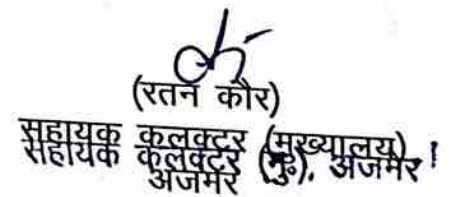 (रतन कौर)
सहायक कलक्टर (मुख्यालय)
सहायक कलक्टर (मु०), अजमेर
अजमेर